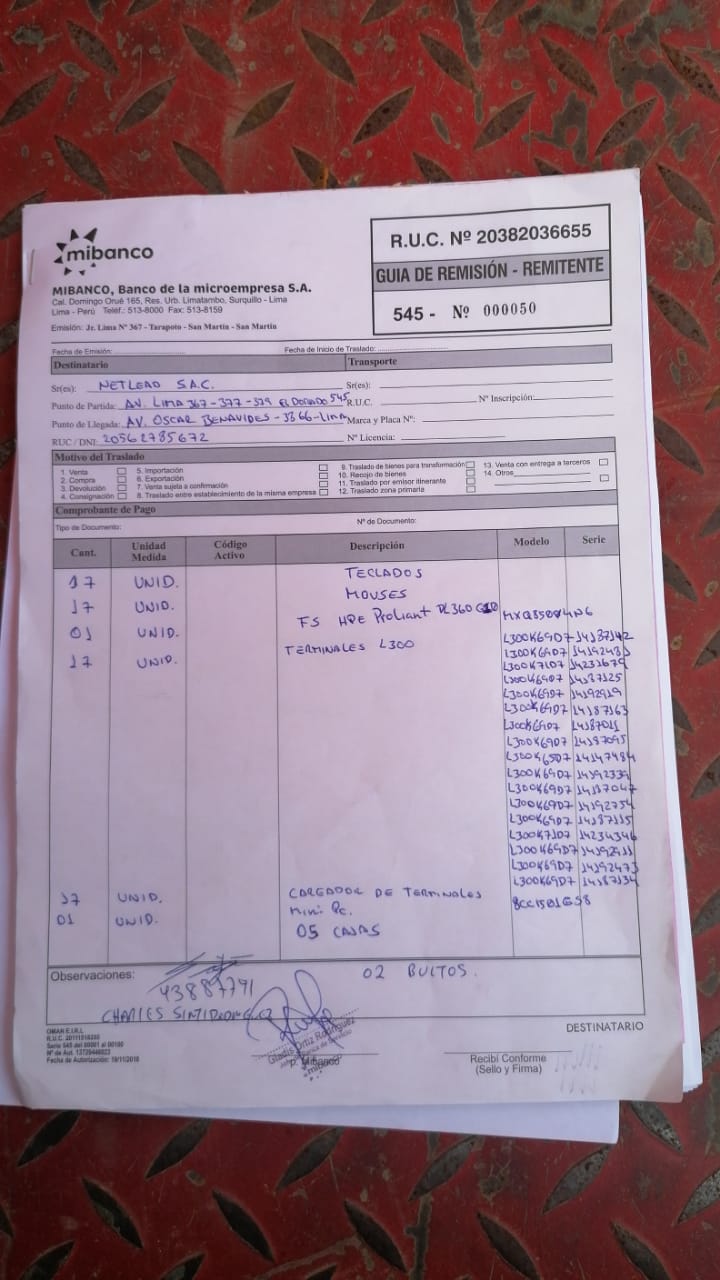 mibanco
MIBANCO, Banco de la microempresa S.A.
Cal. Domingo Orué 165, Res. Urb. Limatambo, Surquillo - Lima
Lima - Perú Telef.: 513-8000 Fax: 513-8159
Emisión: Jr. Lima Nº 367 - Tarapoto - San Martín - San Martín
R.U.C. Nº 20382036655
GUIA DE REMISIÓN - REMITENTE
545 - Nº 000050
Fecha de Emisión: Fecha de Inicio de Traslado:
Destinatario Transporte
Sr(es): NETLEAD S.A.C. Sr(es):
Punto de Partida: AV. LIMA 367-377-379 EL DORADO 545 R.U.C. Nº Inscripción:
Punto de Llegada: AV. OSCAR BENAVIDES - 3866-LIMA Marca y Placa Nº:
RUC / DNI: 20562785672 Nº Licencia:
Motivo del Traslado
1. Venta 5. Importación 9. Traslado de bienes para transformación 13. Venta con entrega a terceros
2. Compra 6. Exportación 10. Recojo de bienes 14. Otros
3. Devolución 7. Venta sujeta a confirmación 11. Traslado por emisor itinerante
4. Consignación 8. Traslado entre establecimiento de la misma empresa 12. Traslado zona primaria
Comprobante de Pago
Tipo de Documento: Nº de Documento:
Cant. Unidad Medida Código Activo Descripción Modelo Serie
17 UNID. TECLADOS
17 UNID. MOUSES
01 UNID. FS HPE ProLiant DL360 G10
17 UNID. TERMINALES L300 L300K69D7 14187142
L300K7107 14231679
L300K69D7 14187125
L300K69D7 14192919
L300K69D7 14187163
L300K69D7 14187011
L300K69D7 14187095
14147484
L300K69D7 14192339
L300K69D7 14187047
L300K69D7 14192754
L300K69D7 14187115
L300K7107 14234346
L300K69D7 14192911
L300K69D7 14192473
L300K69D7 14187134
17 UNID. CARGADOR DE TERMINALES
01 UNID. Mini Pc. 8CC1501GS8
05 CAJAS
Observaciones: 02 BULTOS.
43887791
CHARLES
OMAN E.I.R.L
R.U.C. 20111318205
Serie 545 del 00001 al 00100
Nº de Aut. 13729446023
Fecha de Autorización: 19/11/2018
Gladis Ortiz Rodríguez
mibanco
p. Mibanco
DESTINATARIO
Recibí Conforme
(Sello y Firma)